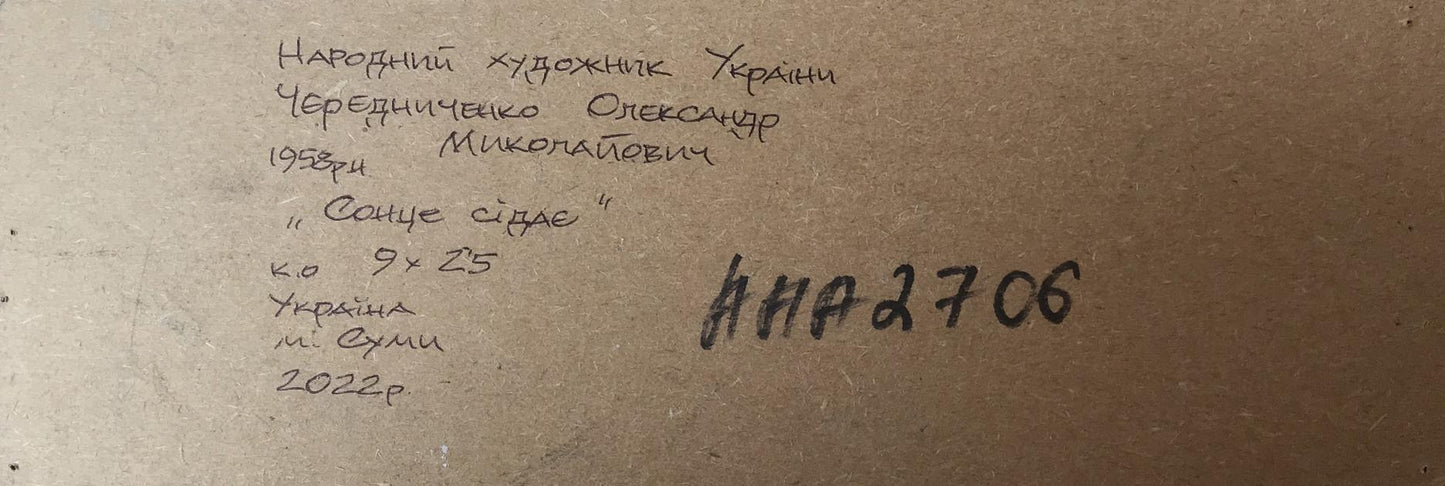 Народний художник України
Чередниченко Олександр
Миколайович
1958рн
„Сонце сідає"
к.о 9х25
Україна
м. Суми
2022р.
АНА2706